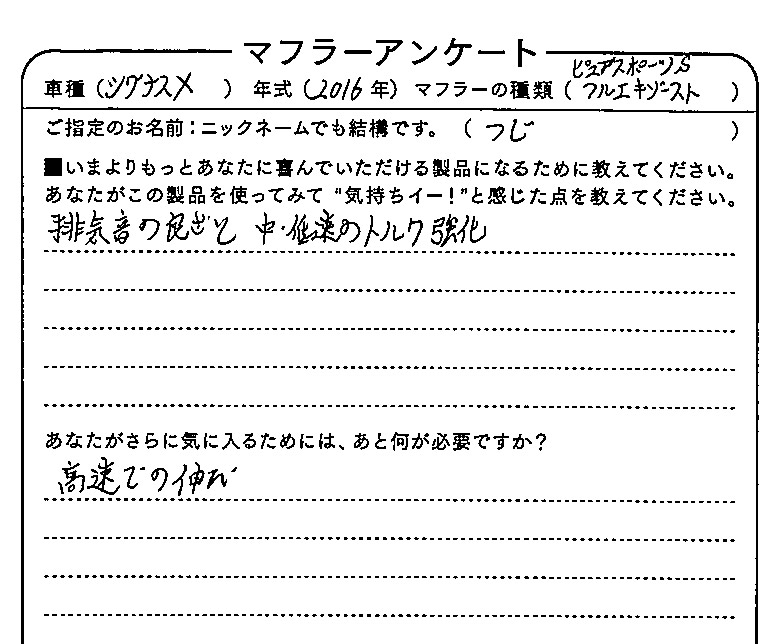 マフラーアンケート
車種（シグナスX）年式（2016年）マフラーの種類（ピュアスポーツS フルエキゾースト）
ご指定のお名前：ニックネームでも結構です。（つじ）
■いまよりもっとあなたに喜んでいただける製品になるために教えてください。
あなたがこの製品を使ってみて“気持ちイー！”と感じた点を教えてください。
排気音の良さと 中・低速のトルク強化
あなたがさらに気に入るためには、あと何が必要ですか？
高速での伸び